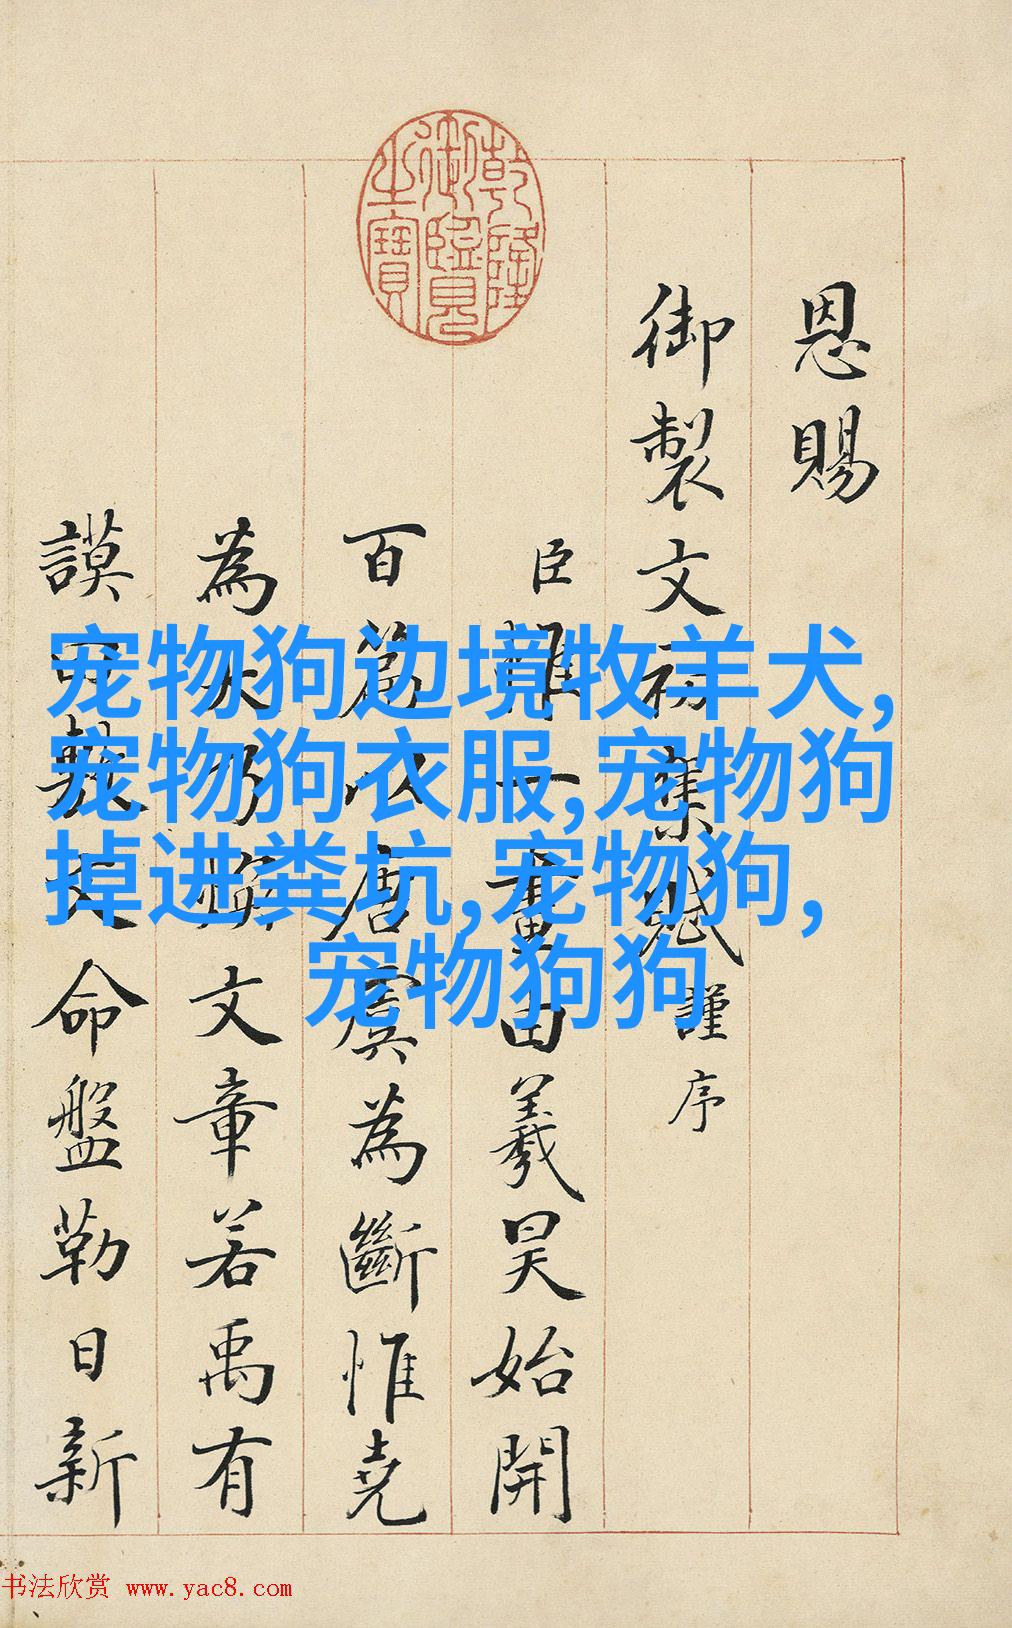 乾隆御覽之寶
恩賜
御製文初集賦謹序
臣一畫由羲昊始開
百篇以唐虞為斷惟堯
為大乃煥文章若禹有
謨命盤勒日新
宠物狗边境牧羊犬,
宠物狗衣服,宠物狗
掉进粪坑,宠物狗,
宠物狗狗
书法欣赏 www.yac8.com